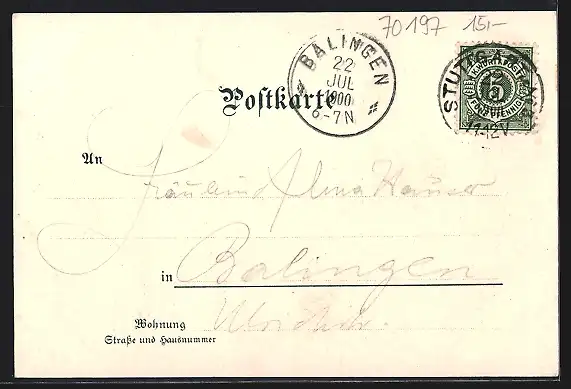 70197 15,-
BALINGEN
22
JUL
1900
6-7N
STUTTGART
K. WÜRTT. POST
5
FÜNF PFENNIG
11-12V
Postkarte
An
Fräulein
in
Balingen
Wohnung
Straße und Hausnummer